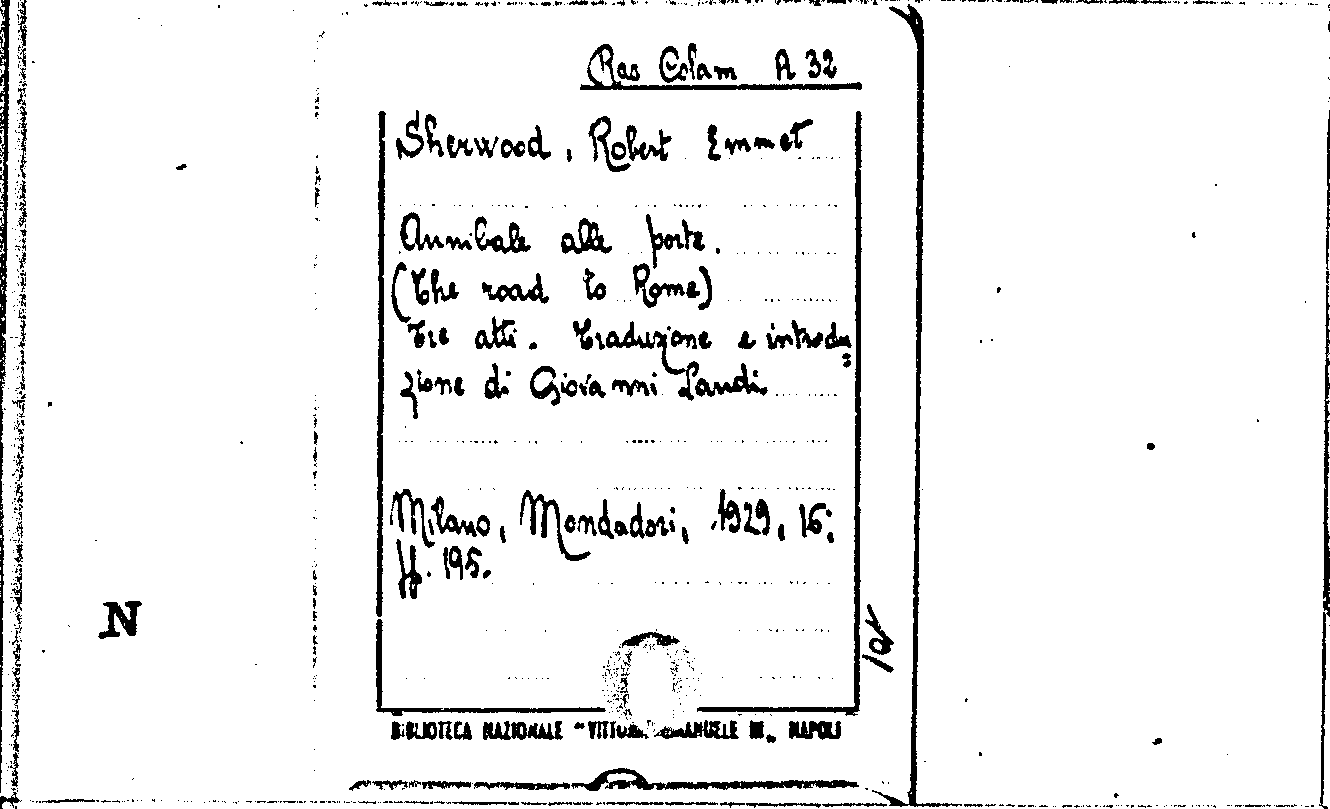 Ras Colam A 32
Sherwood, Robert Emmet
Annibale alle porte.
(The road to Rome)
Tre atti. Traduzione e introdu=
zione di Giovanni Landi.
Milano, Mondadori, 1929, 16:
pp. 195.
N
BIBLIOTECA NAZIONALE "VITTORIO EMANUELE III„ NAPOLI